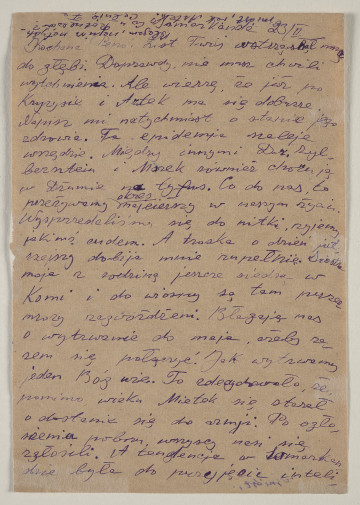 23/II
Kochani Beno! List Twój wstrząsnął mną
do głębi. Doprawdy, nie masz chwili
wytchnienia. Ale wierzę, że już po
Kryzysie i Artek ma się dobrze.
Napisz mi natychmiast o stanie jego
zdrowia. Ta epidemia szaleje
wszędzie. Między innymi Dr. Zyl-
berstein i Marek również chorują
w Dżumie na tyfus. Co do nas, to
przeżywamy obecnie
najcięższy w naszym życiu.
Wysprzedaliśmy się do nitki, żyjemy
jakimś cudem. A troska o dzień ju-
trzejszy dobija mnie zupełnie.
moja z rodziną jeszcze siedzą w
Komi i do wiosny są tam przez
mrozy zagwożdżeni. Błagają nas
o wytrwanie do maja, ażeby ra-
zem się połączyć. Jak wytrwamy
jeden Bóg wie. To zdecydowało, że
pomimo wieku Mietek się starał
o dostanie się do armji. Po ogło-
szeniu poboru, wszyscy nasi się
zgłosili. A tendencja w Samarkan-
dzie była do przyjęcia inteli-